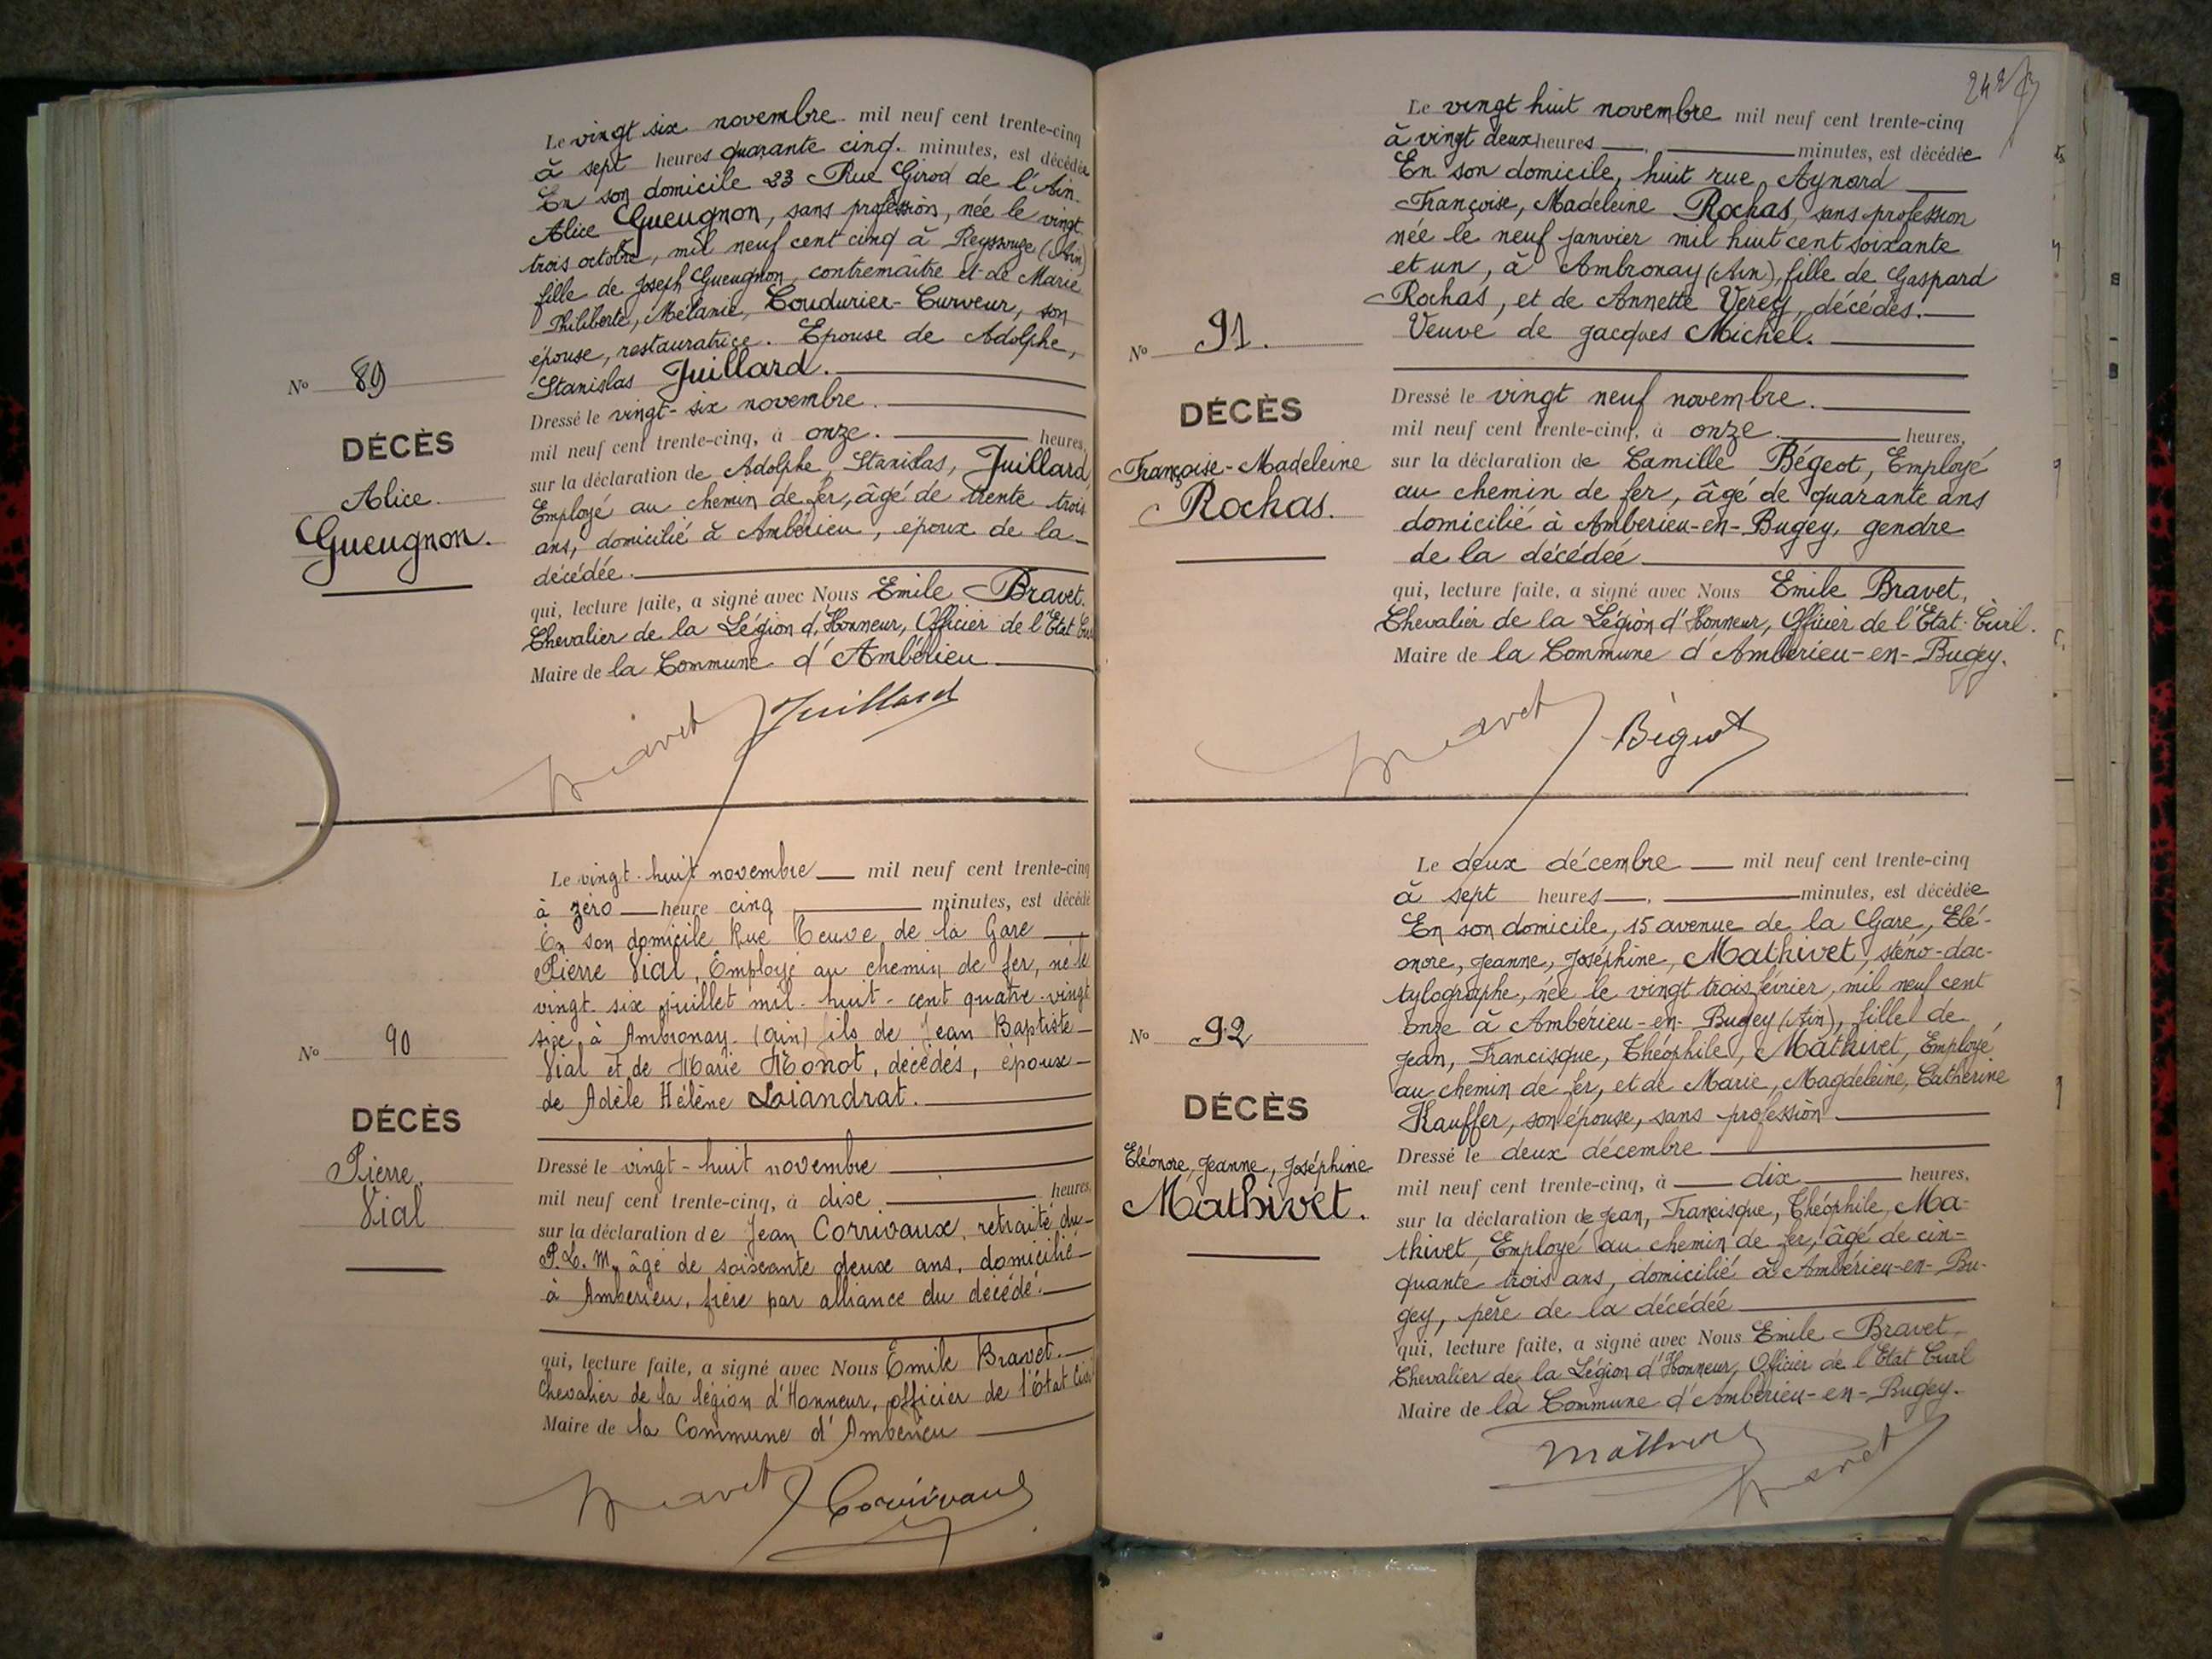 Le vingt six novembre mil neuf cent trente-cinq
à sept heures quarante cinq. minutes, est décédée
En son domicile 23 Rue Girod de l'Ain.
Alice Gueugnon, sans profession, née le vingt
trois octobre, mil neuf cent cinq à Reyssouze (Ain)
fille de Joseph Gueugnon, contremaître et de Marie
Philiberte, Mélanie, Coudurier-Curveur, son
épouse, restauratrice. Epouse de Adolphe,
Stanislas Juillard.
Nº 89
DÉCÈS
Alice
Gueugnon.
Dressé le vingt-six novembre.
mil neuf cent trente-cinq, à onze. heures,
sur la déclaration de Adolphe, Stanislas, Juillard,
Employé au chemin de fer, âgé de trente trois
ans, domicilié à Ambérieu, époux de la
décédée.
qui, lecture faite, a signé avec Nous Emile Bravet.
Chevalier de la Légion d'Honneur, Officier de l'Etat
Maire de la Commune d'Ambérieu
Bravet Juillard
Le vingt-huit novembre mil neuf cent trente-cinq
à zéro heure cinq minutes, est décédé
En son domicile Rue Neuve de la Gare
Pierre Vial, Employé au chemin de fer, né le
vingt-six juillet mil-huit-cent quatre-vingt
six à Ambronay (Ain) fils de Jean Baptiste
Vial et de Marie Monot, décédés, époux
de Adèle Hélène Laiandrat.
Nº 90
DÉCÈS
Pierre
Vial
Dressé le vingt-huit novembre
mil neuf cent trente-cinq, à dix heures,
sur la déclaration de Jean Corrivaux, retraité du
P.L.M., âgé de soixante deux ans, domicilié
à Ambérieu, frère par alliance du décédé.
qui, lecture faite, a signé avec Nous Emile Bravet.
Chevalier de la légion d'Honneur, officier de l'Etat Civil
Maire de la Commune d'Ambérieu
Bravet Corrivaux
Le vingt huit novembre mil neuf cent trente-cinq
à vingt deux heures minutes, est décédée
En son domicile, huit rue Aynard
Françoise, Madeleine Rochas, sans profession
née le neuf janvier mil huit cent soixante
et un, à Ambronay (Ain), fille de Gaspard
Rochas, et de Annette Verey, décédés.
Veuve de Jacques Michel.
Nº 91.
DÉCÈS
Françoise-Madeleine
Rochas.
Dressé le vingt neuf novembre.
mil neuf cent trente-cinq, à onze heures,
sur la déclaration de Camille Bégeot, Employé
au chemin de fer, âgé de quarante ans
domicilié à Ambérieu-en-Bugey, gendre
de la décédée
qui, lecture faite, a signé avec Nous Emile Bravet,
Chevalier de la Légion d'Honneur, Officier de l'Etat-Civil.
Maire de la Commune d'Ambérieu-en-Bugey.
Bravet Bégeot
Le deux décembre mil neuf cent trente-cinq
à sept heures minutes, est décédée
En son domicile, 15 avenue de la Gare, Elé-
onore, Jeanne, Joséphine, Mathivet, sténo-dac-
tylographe, née le vingt trois février, mil neuf cent
onze à Ambérieu-en-Bugey (Ain), fille de
Jean, Francisque, Théophile, Mathivet, Employé
au chemin de fer, et de Marie, Magdeleine, Catherine
Kauffer, son épouse, sans profession
Nº 92
DÉCÈS
Eléonore, Jeanne, Joséphine
Mathivet.
Dressé le deux décembre
mil neuf cent trente-cinq, à dix heures,
sur la déclaration de Jean, Francisque, Théophile, Ma-
thivet, Employé au chemin de fer, âgé de cin-
quante trois ans, domicilié à Ambérieu-en-Bu-
gey, père de la décédée
qui, lecture faite, a signé avec Nous Emile Bravet
Chevalier de la Légion d'Honneur, Officier de l'Etat Civil
Maire de la Commune d'Ambérieu-en-Bugey.
Mathivet Bravet